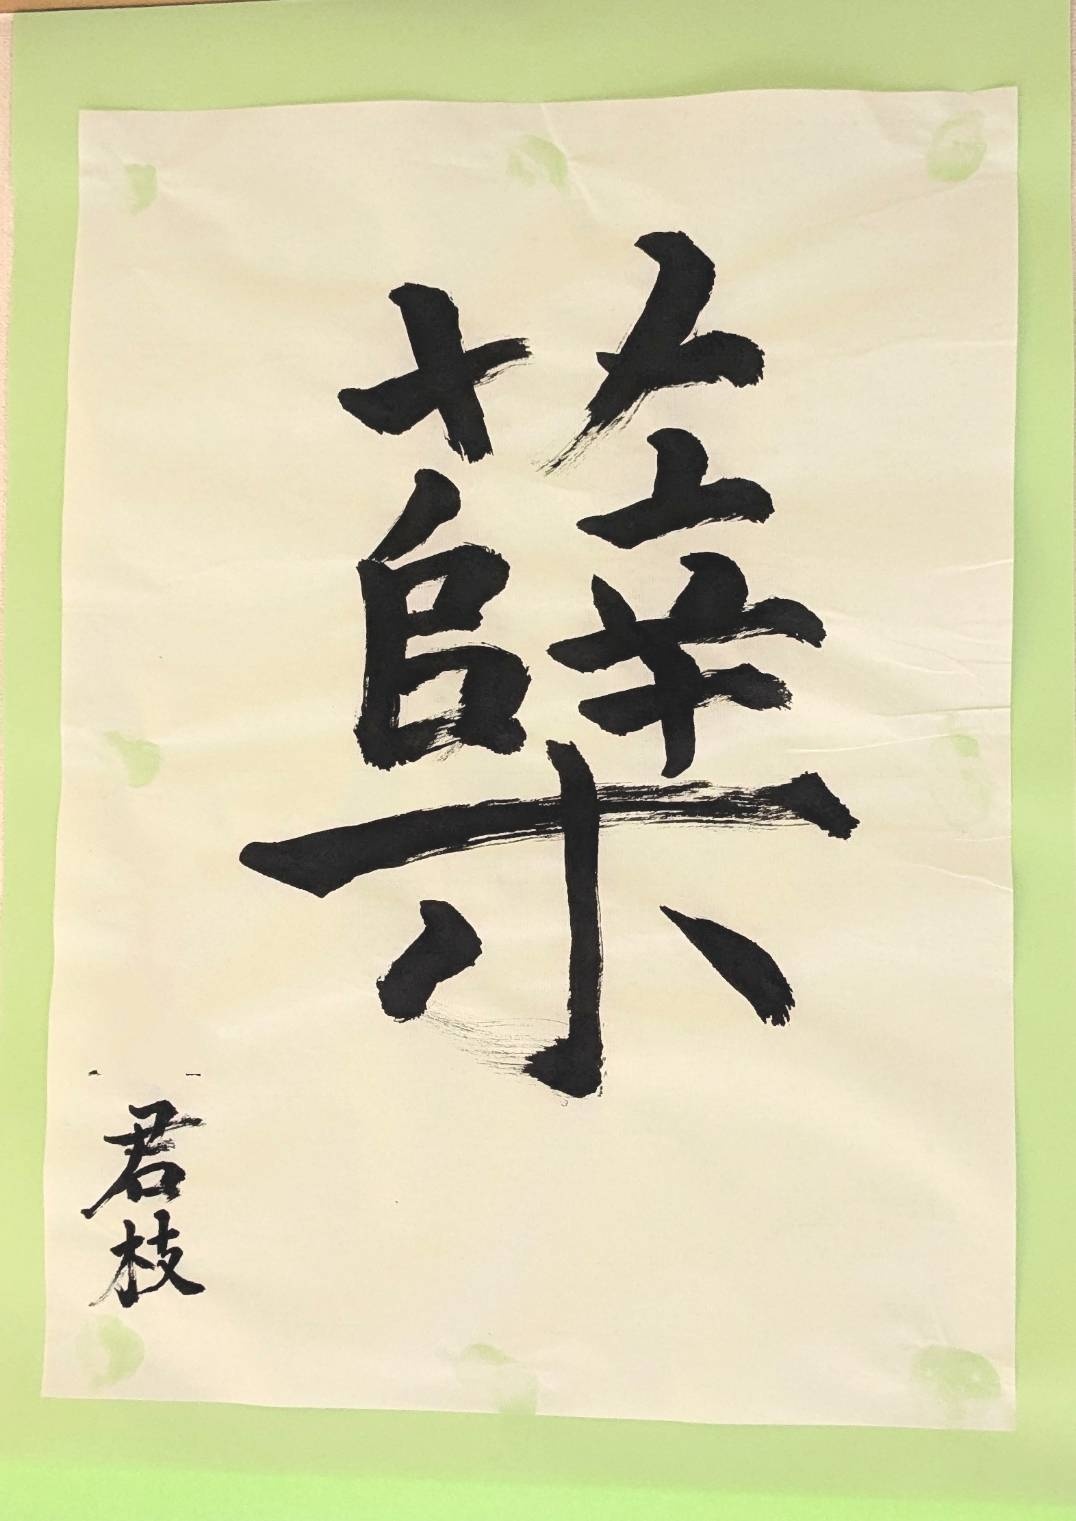 蘖
君枝